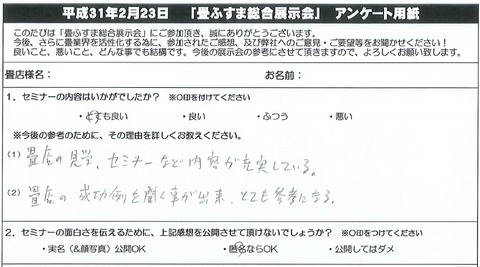 平成31年2月23日 「畳ふすま総合展示会」 アンケート用紙
このたびは「畳ふすま総合展示会」にご参加頂き、誠にありがとうございます。
今後、さらに畳業界を活性化する為に、参加されたご感想、及び弊社へのご意見・ご要望等をお聞かせください！
良いこと、悪いこと、どんな事でも結構です。今後の展示会の参考にさせて頂きますので、よろしくお願い致します。
畳店様名： お名前：
1．セミナーの内容はいかがでしたか？ ※○印を付けてください
・とても良い ・良い ・ふつう ・悪い
※今後の参考のために、その理由を詳しくお教えください。
(1) 畳店の見学、セミナーなど内容が充実している。
(2) 畳店の成功例を聞く事が出来、とても参考になる。
2．セミナーの面白さを伝えるために、上記感想を公開させて頂けないでしょうか？ ※○印をつけてください
・実名（&顔写真）公開OK ・匿名ならOK ・公開してはダメ